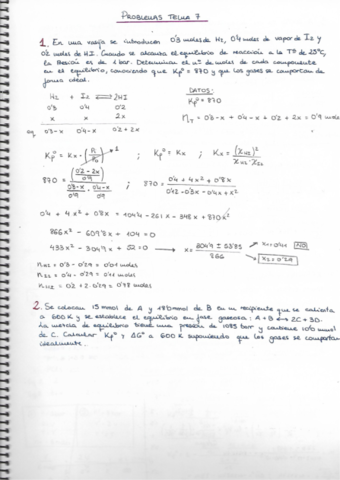 PROBLEMAS TEMA 7
1. En una vasija se introducen 0'3 moles de H2, 0'4 moles de vapor de I2 y
0'2 moles de HI. Cuando se alcanza el equilibrio de reacción a la Tª de 25ºC,
la presión es de 1 bar. Determinar el nº de moles de cada componente
en el equilibrio, conociendo que Kpº = 870 y que los gases se comportan de
forma ideal.
H2 + I2 ⇌ 2HI
DATOS:
Kpº = 870
0'3 0'4 0'2
x x 2x
nT = 0'3-x + 0'4-x + 0'2+2x = 0'9 moles
eq 0'3-x 0'4-x 0'2+2x
Kpº = Kx · ; Kpº = Kx ; Kx = (XHI)² / XH2 · XI2
870 = ; 870 = 0'4 + 4x² + 0'8x / 0'12 - 0'3x - 0'4x + x²
0'4 + 4x² + 0'8x = 104'4 - 261x - 348x + 870x²
866x² - 609'8x + 104 = 0
x1 = NO
x2 = 0'29
nH2 = 0'3 - 0'29 = 0'01 moles
nI2 = 0'4 - 0'29 = 0'11 moles
nHI = 0'2 + 2·0'29 = 0'78 moles
2. Se colocan 15 mmol de A y 18 mmol de B en un recipiente que se calienta
a 600K y se establece el equilibrio en fase gaseosa: A + B ⟷ 2C + 3D.
La mezcla de equilibrio tiene una presión de 1085 bar y contiene 10 mmol
de C. Calcular Kpº y ΔGº a 600K suponiendo que los gases se comportan
idealmente.